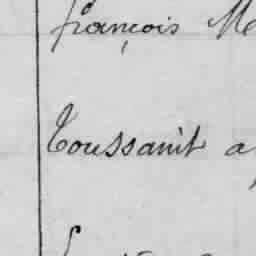 françois
Toussanit a